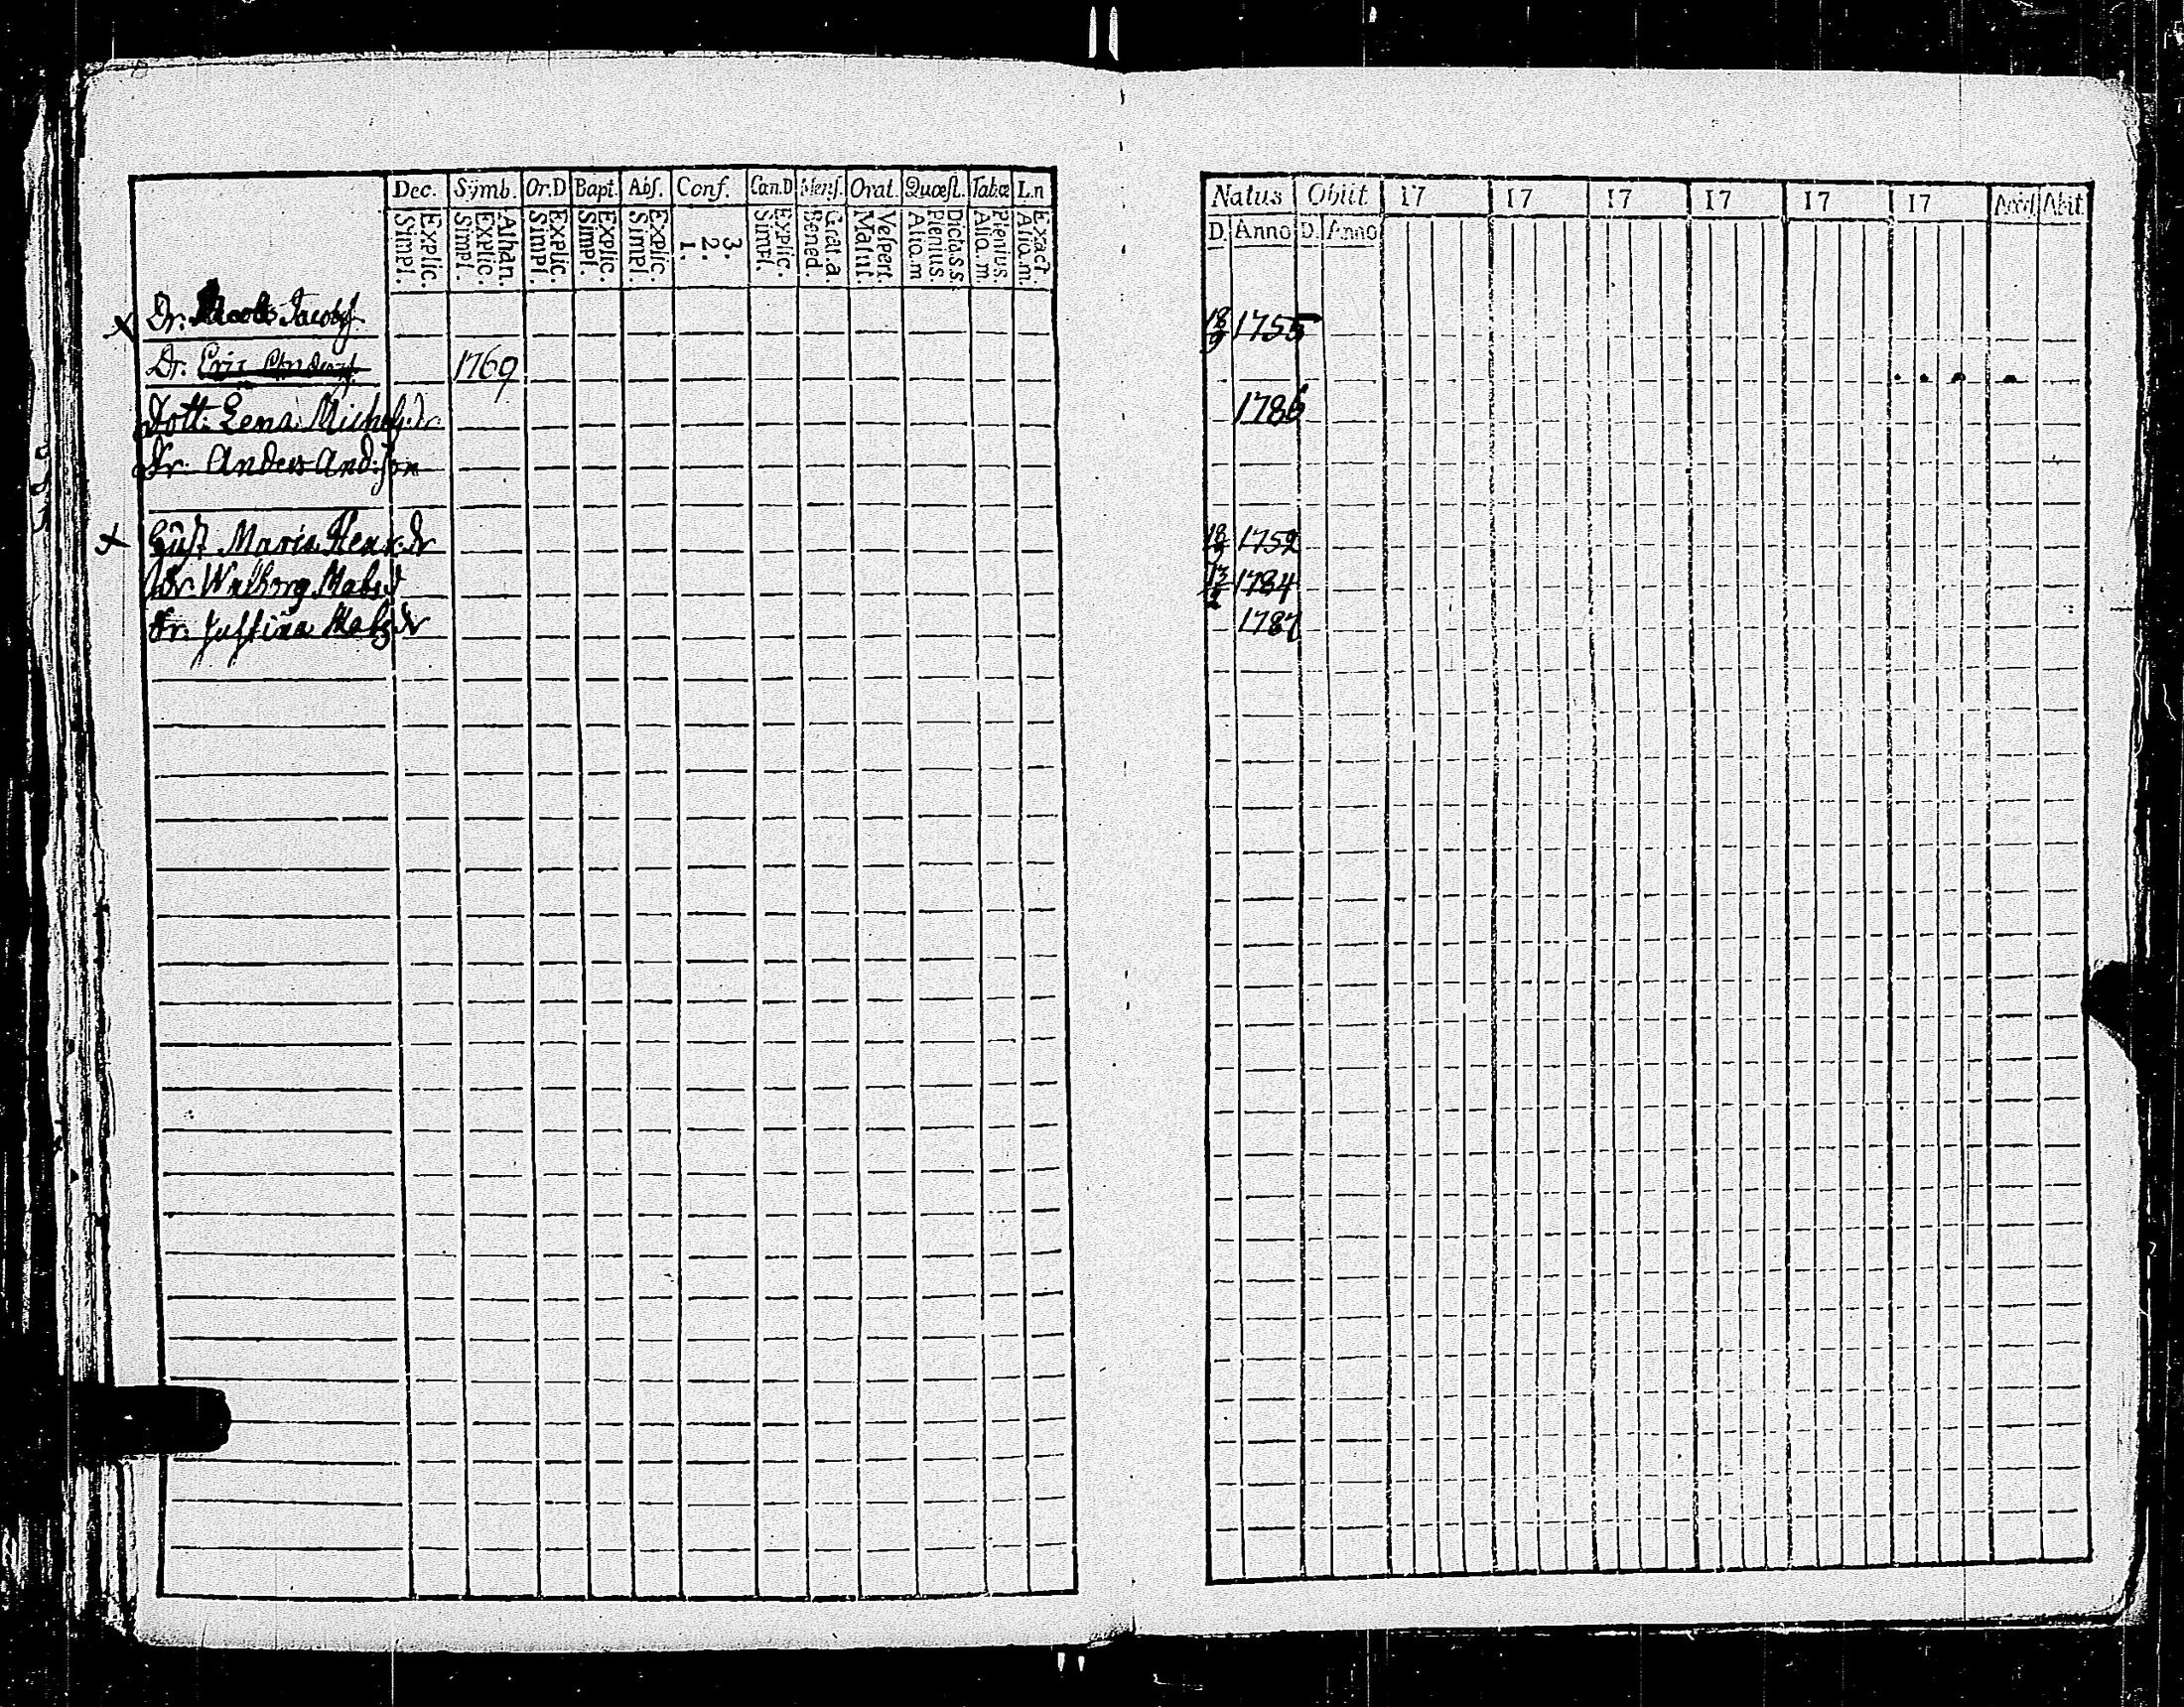 Dec. Symb. Or.D Bapt. Abs. Conf. Can.D Mens. Orat. Quæst. Tabæ L.n
Explic. Simpl. Athan. Explic. Simpl. Explic. Simpl. Explic. Simpl. Explic. Simpl. 3. 2. 1. Explic. Simpl. Grat.a. Bened. Vespert. Matut. Dicta.s.s. Plenius. Aliq.m. Plenius. Aliq.m. Exact. Aliq.m.
Dr. Jacobs
Dr. Eric Anders 1769
Dott. Lena Michels.dr.
Dr. Anders And:son
Gust Maria Henr.dr
Dr Walborg Mats.d
Dr. Justina Mats.dr
Natus Obiit 17 17 17 17 17 17 Accd. Abit
D. Anno D. Anno
18/9 1755
1786
18/9 1752
1784
1787